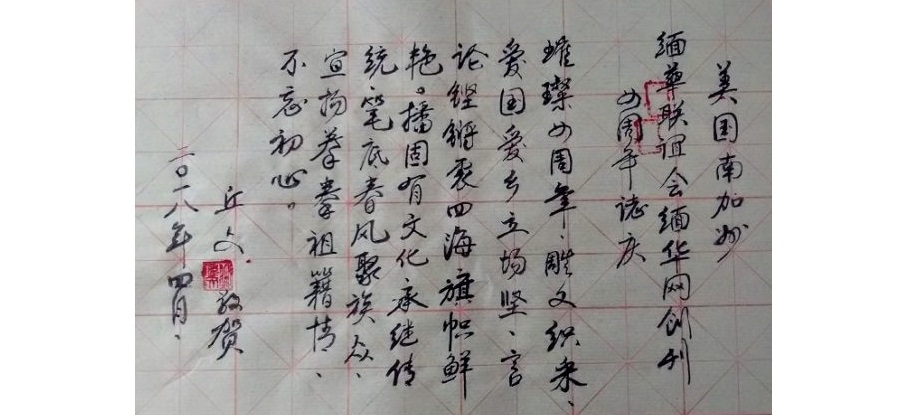 美国南加州
缅华联谊会缅华网创刊
周年誌庆
璀璨周年、雕文织采、
爱国爱乡立场坚、言
论铿锵震四海旗帜鲜
艳。播固有文化承继传
统笔底春风聚族众、
宣扬拳拳祖籍情、
不忘初心。
丘文、敬贺
二〇一八年四月、